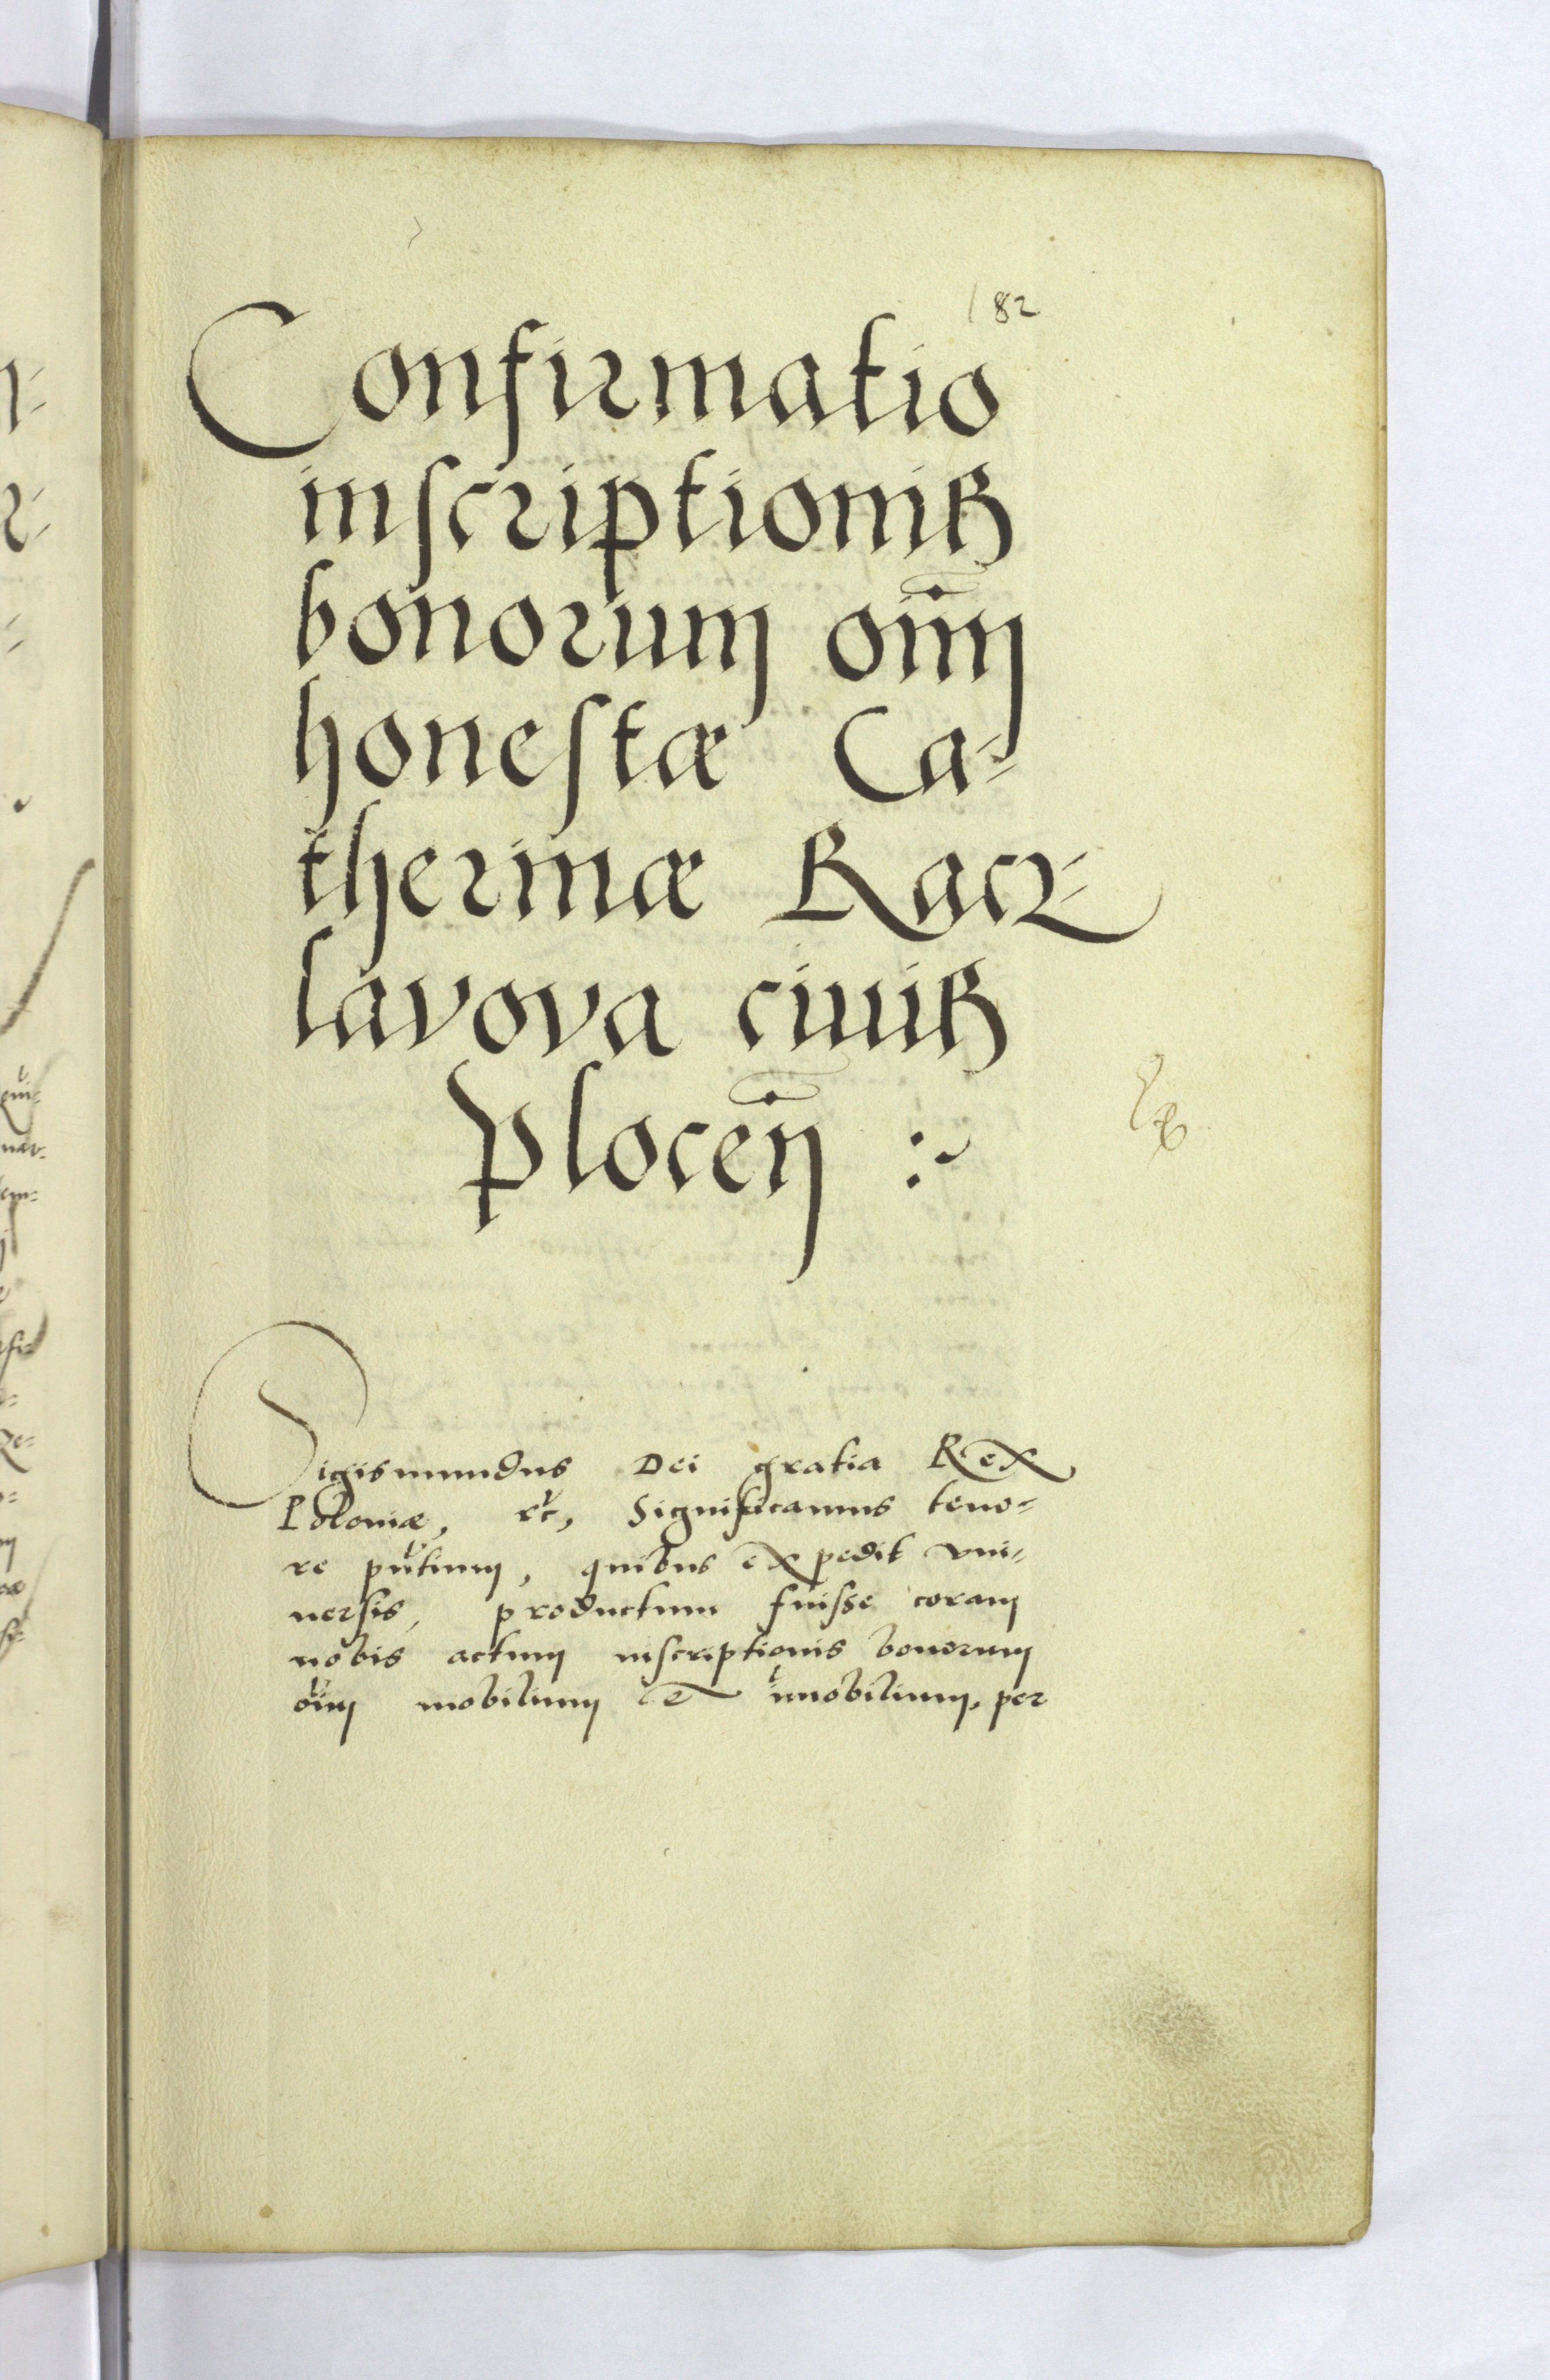 182
Confirmatio
inscriptionis
bonorum om̄
honestæ Ca-
therinæ Racz-
lavova civis
Plocen̄ :~
Sigismundus Dei gratia Rex
Poloniæ, etc, Significamus teno-
re pn̄tium, quibus expedit vni-
uersis, productum fuisse coram
nobis actum inscriptionis bonorum
om̄ mobilium et im̄obilium, per